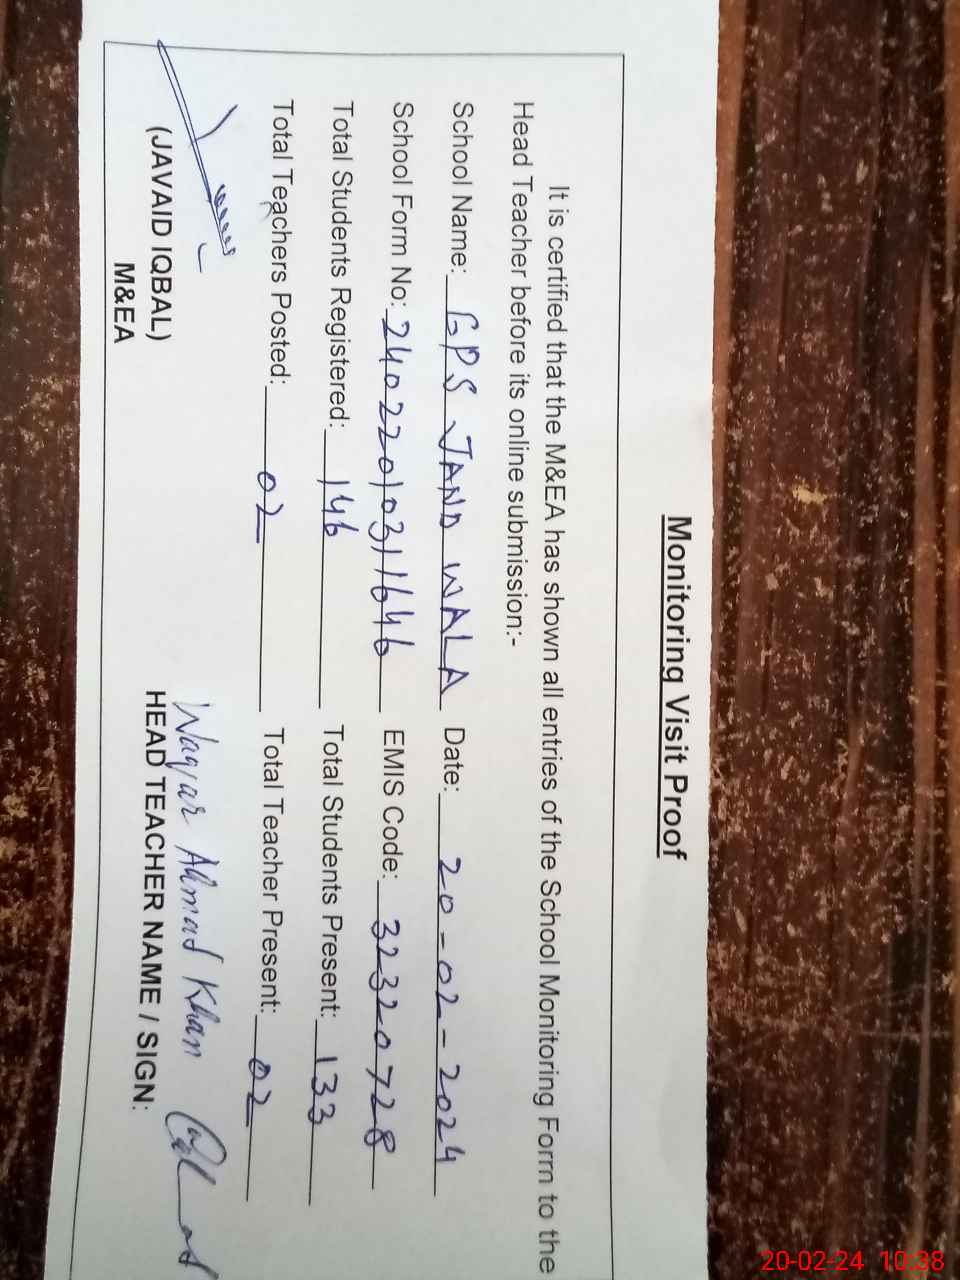 Monitoring Visit Proof
It is certified that the M&EA has shown all entries of the School Monitoring Form to the
Head Teacher before its online submission:-
School Name: GPS JAND WALA Date: 20-02-2024
School Form No: 24022010311646 EMIS Code: 32320728
Total Students Registered: 146 Total Students Present: 133
Total Teachers Posted: 02 Total Teacher Present: 02
Waqar Ahmad Khan
(JAVAID IQBAL) HEAD TEACHER NAME / SIGN:
M&EA
20-02-24 10:38